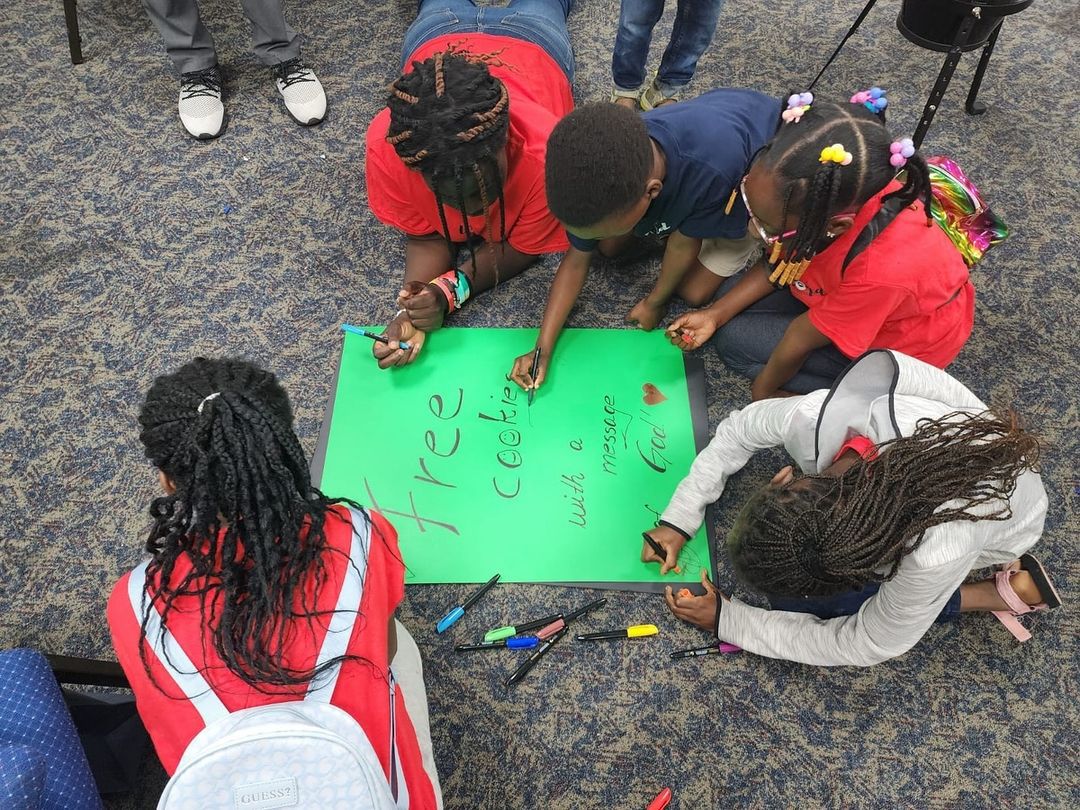 Free
cookie
with a
message
of God!
GUESS?